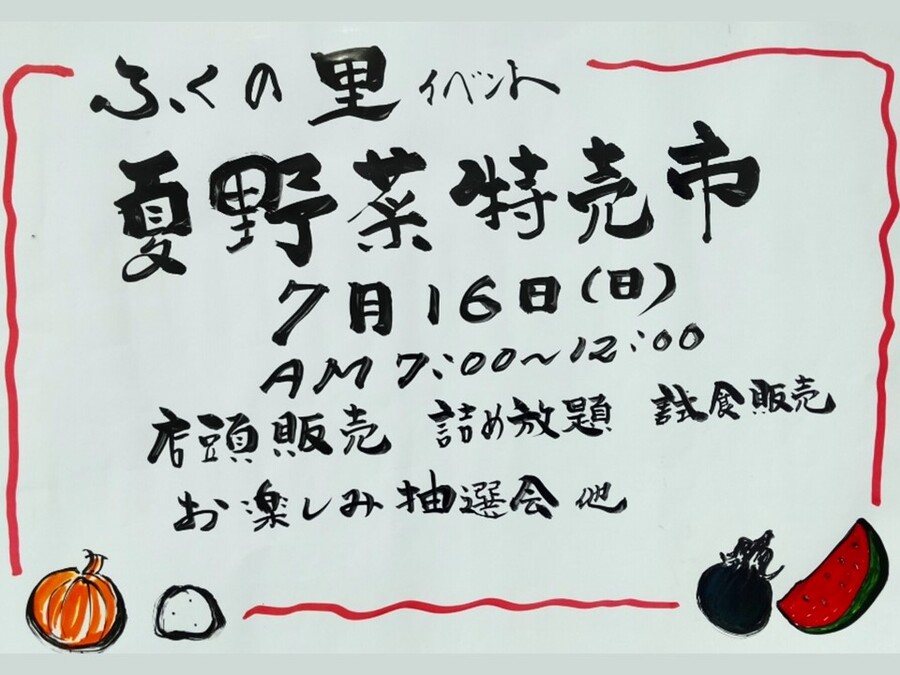 ふくの里 イベント
夏野菜特売市
7月16日(日)
AM 7:00~12:00
店頭販売 詰め放題 試食販売
お楽しみ抽選会 他